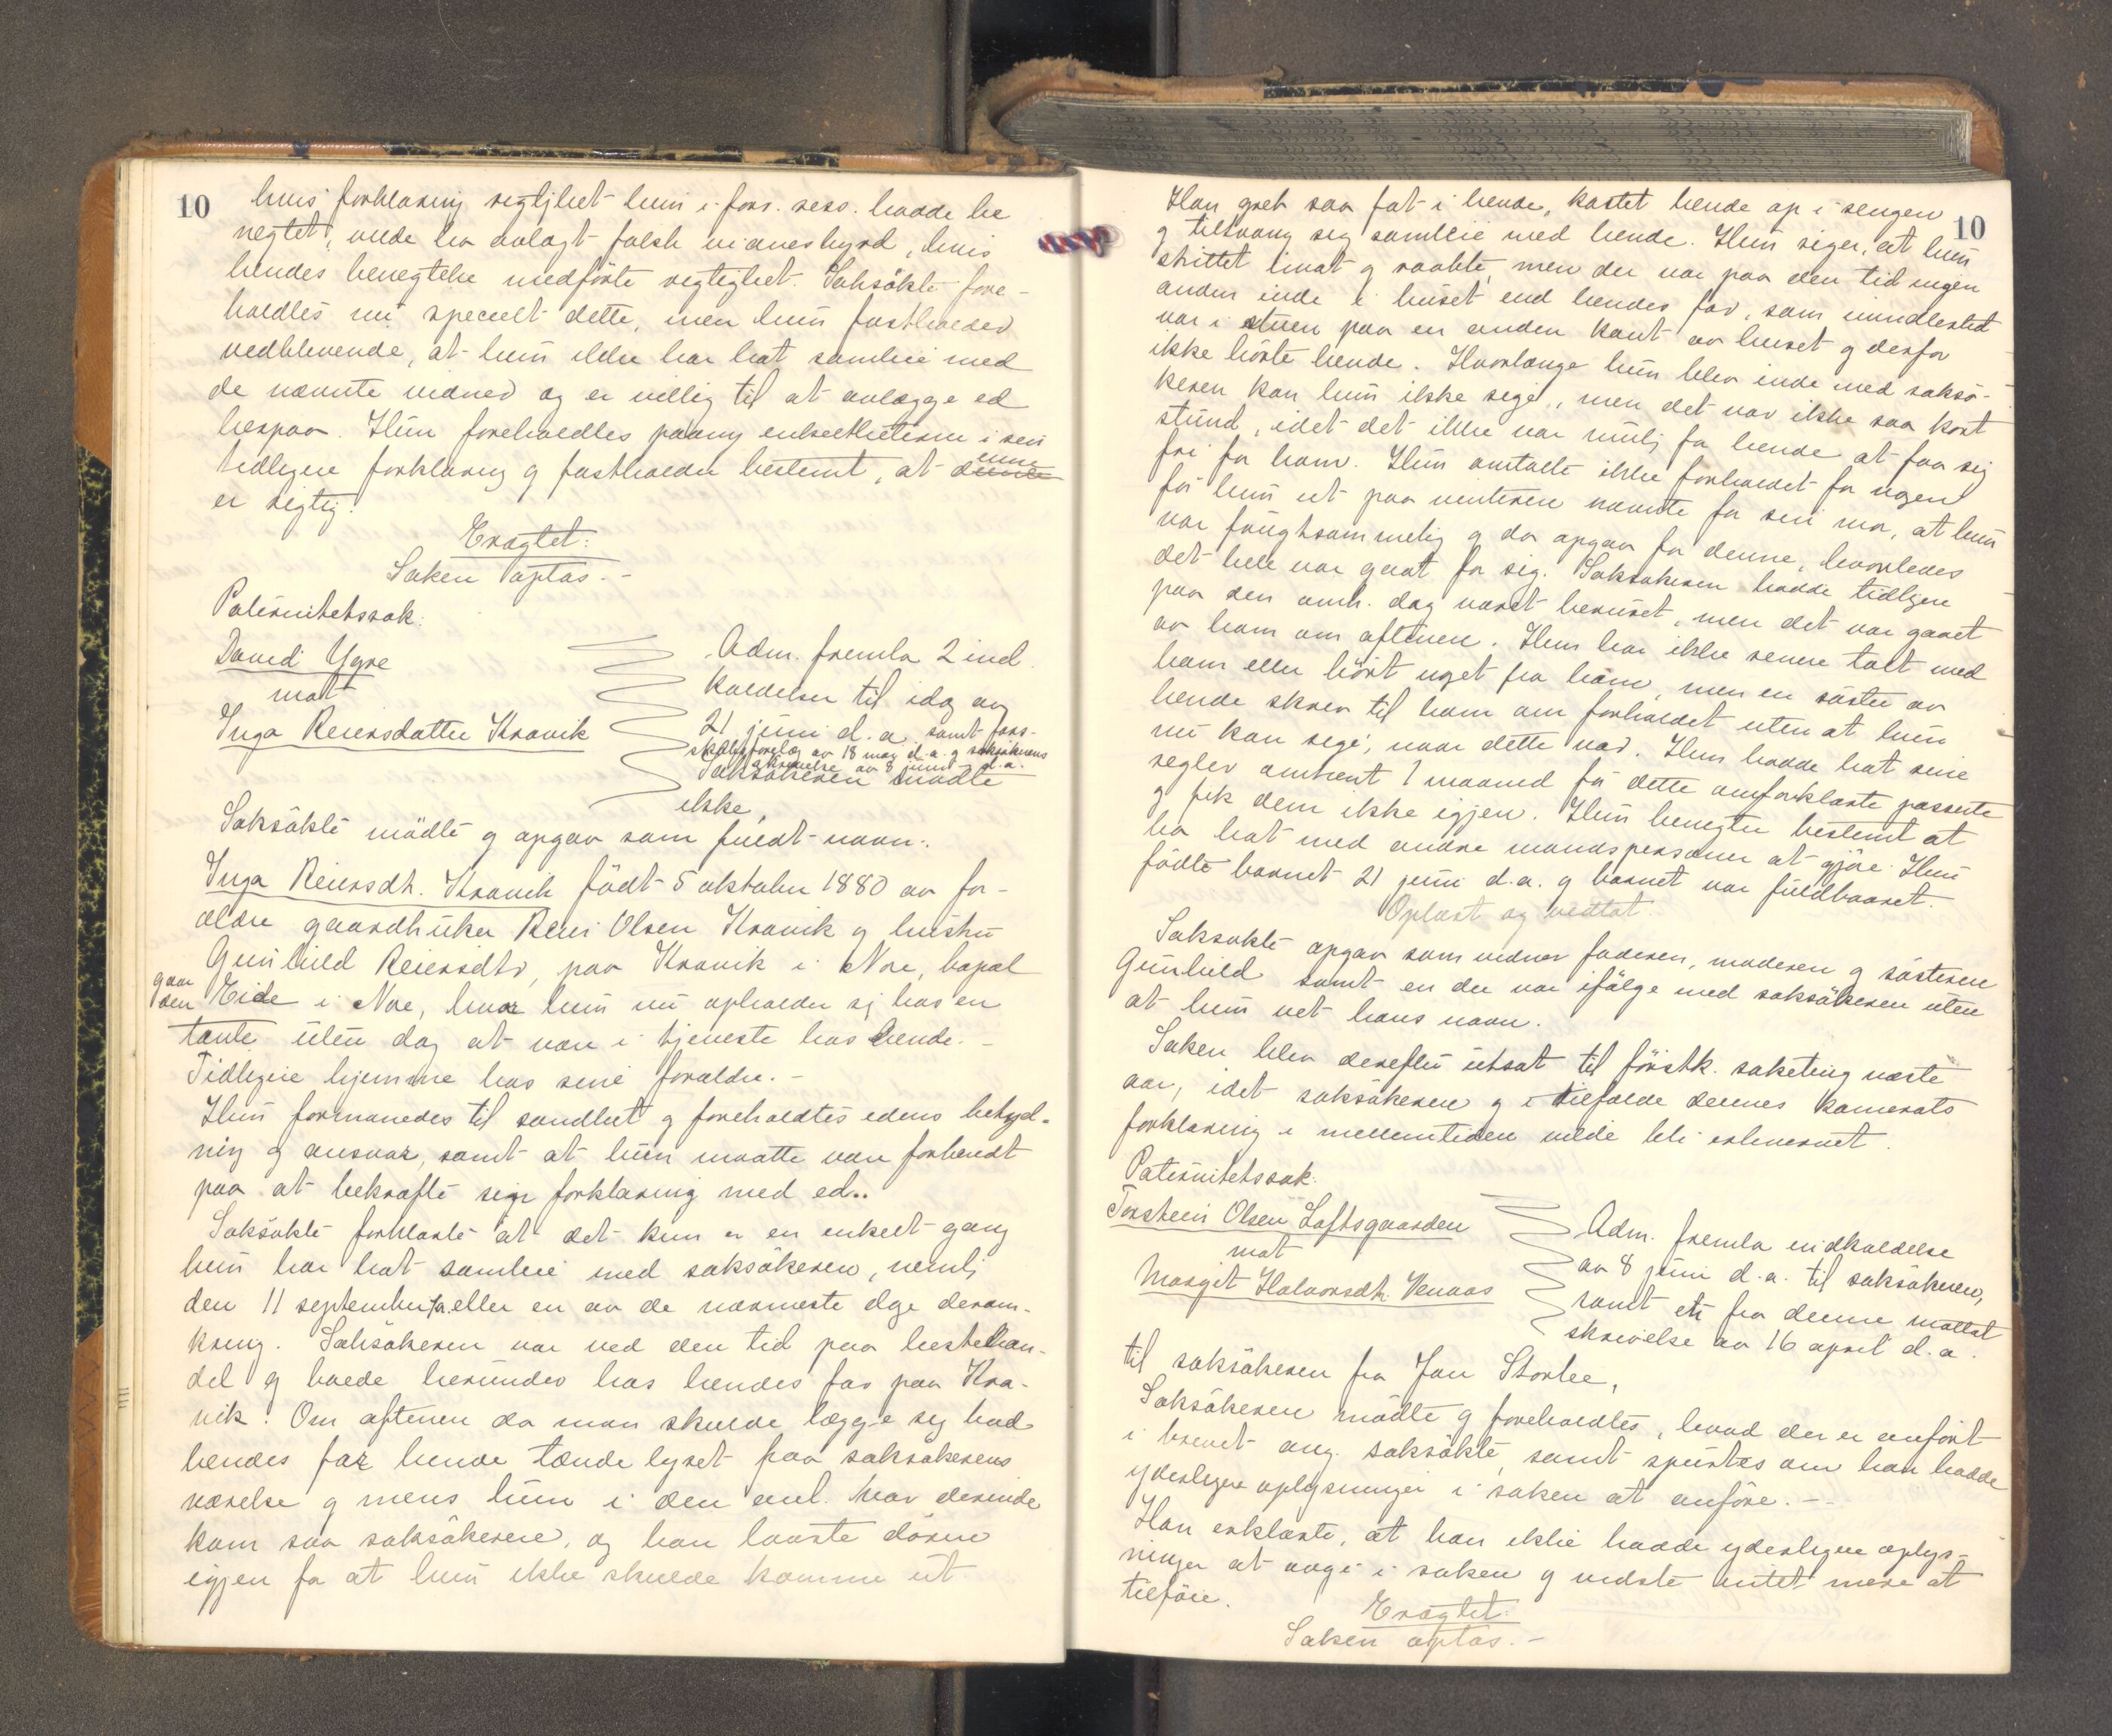 10
hvis forklaring rigtighet hun i fors. ress. hadde be
negtet, vilde ha avlagt falsk vidnesbyrd, hvis
hendes benegtelse medførte rigtighet. Saksøkte fore-
holdtes nu specielt dette, men hun fastholder
vedblivende, at hun ikke har hat samleie med
de nævnte vidner og er villig til at avlægge ed
herpaa. Hun foreholdtes paany enkeltheterne i sin
tidligere forklaring g fastholder bestemt, at denne
er rigtig.
Eragtet:
Saken optas. -
Paternitetssak:
David Ygre
mot
Inga Reiersdatter Kravik
Adm. fremla 2 ind
kaldelser til idag av
21 juni d.a. samt fors-
skelsforelæg av 18 mai d.a. g saksøkerens
skrivelse av 8 juni d.a.
Saksøkeren mødte
ikke,
Saksøkte mødte g opgav som fuldt navn:
Inga Reiersdtr. Kravik født 5 oktober 1880 av for-
ældre gaardbruker Reier Olsen Kravik g hustru
Gunhild Reiersdtr, paa Kravik i Nore, bopæl
gaar
den Eide i Nore, hvor hun nu opholder sg hos en
tante uten dog at være i tjeneste hos hende. -
Tidligere hjemme hos sine forældre. -
Hun formanedes til sandhet g foreholdtes edens betyd-
ning g ansvar, samt at hun maatte være forberedt
paa at bekræfte sin forklaring med ed..
Saksøkte forklarte at det kun er en enkelt gang
hun har hat samleie med saksøkeren, nemlig
den 11 september f.a. eller en av de nærmeste dage derom-
kring. Saksøkeren var ved den tid paa hestehan-
del g boede herunder hos hendes far paa Kra-
vik. Om aftenen da man skulde lægge sig bad
hendes far hende tænde lyset paa saksøkerens
værelse g mens hun i den anl. var derinde
kom saa saksøkeren, og han laaste døren
igjen for at hun ikke skulde komme ut
10
Han greb saa fat i hende, kastet hende op i sengen
g tiltvang seg samleie med hende. Hun siger, at hun
skrittet imot g raabte, men der var paa den tid ingen
anden inde i huset end hendes far, som imidlertid
var i stuen paa en anden kant av huset g derfor
ikke hørte hende. Hvorlænge hun blev inde med saksø-
keren kan hun ikke sige, men det var ikke saa kort
stund, idet det ikke var mulig for hende at faa sig
fri for ham. Hun omtalte ikke forholdet for nogen
før hun ut paa vinteren nævnte for sin mor, at hun
var frugtsommelig g da opgav for denne, hvorledes
det hele var gaat for sig. Saksøkeren hadde tidligere
paa den omh. dag været beruset, men det var gaaet
av ham om aftenen. Hun har ikke senere talt med
ham eller hørt noget fra ham, men en søster av
hende skrev til ham om forholdet uten at hun
nu kan sige, naar dette var. Hun hadde hat sine
regler omtrent 1 maaned før dette omforklarte passerte
g fik dem ikke igjen. Hun benegter bestemt at
ha hat med andre mandspersoner at gjøre. Hun
fødte barnet 21 juni d.a. g barnet var fuldbaaret.
Oplæst og vedtat.
Saksøkte opgav som vidner faderen, moderen g søsteren
Gunhild samt en der var ifølge med saksøkeren uten
at hun vet hans navn.
Saken blev derefter utsat til førstk. saketing næste
aar, idet saksøkeren g i tilfælde dennes kamerats
forklaring i mellemtiden vilde bli erhvervet.
Paternitetssak:
Torstein Olsen Loftsgaarden
mot
Margit Halvorsdtr. Venaas
Adm. fremla indkaldelse
av 8 juni d.a. til saksøkeren,
samt en fra denne mottat
skrivelse av 16 april d.a.
til saksøkeren fra Jon Storlee,
Saksøkeren mødte g foreholdtes, hvad der er anført
i brevet ang. saksøkte, samt spurtes om han hadde
yderligere oplysninger i saken at anføre. -
Han erklærte, at han ikke hadde yderligere oplys-
ninger at avgi i saken g vidste intet mere at
tilføie.
Eragtet:
Saken optas. -